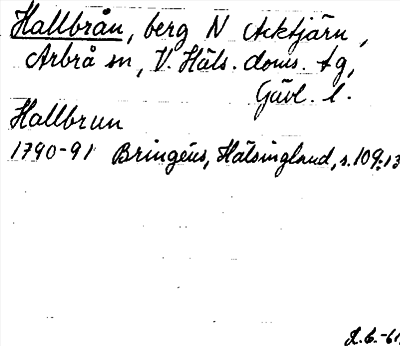 Hallbrån, berg N Acktjärn,
Arbrå sn, V. Häls. doms. tg,
Gävl. l.
Hallbrun
1790-91 Bringéus, Hälsingland, s. 109:13
R.C.-61